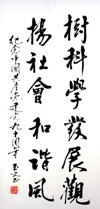 樹科學發展觀
揚社會和諧風
紀念中國共產黨建党九十周年